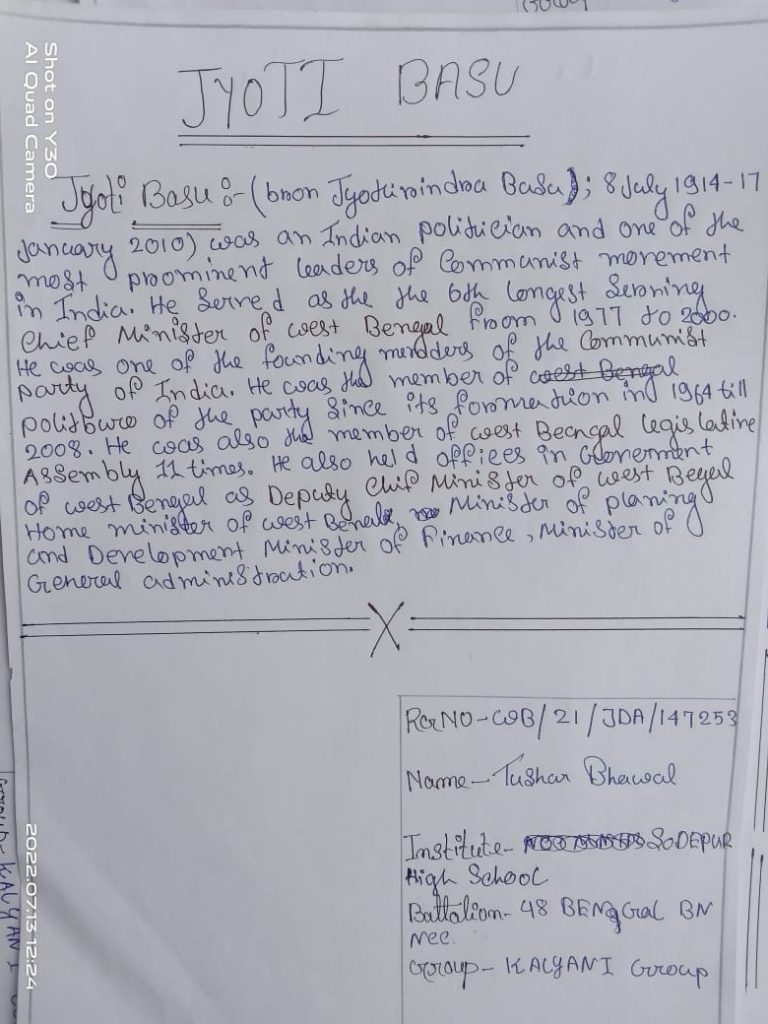 JYOTI BASU
Jyoti Basu :- (bron Jyotirindra Basu); 8 July 1914-17
January 2010) was an Indian politician and one of the
most prominent leaders of Communist movement
in India. He Served as the the 6th longest Serving
Chief Minister of west Bengal from 1977 to 2000.
He was one of the founding memders of the Communist
party of India. He was the member of west Bengal
politburo of the party Since its formation in 1964 till
2008. He was also the member of west Becngal legislatine
Assembly 11 times. He also held offiees in Government
of west Bengal as Deputy Chif Minister of west Begal
Home minister of west Benal, Minister of planing
and Development Minister of Finance, Minister of
General administration.
X
RegNO-WB/21/JDA/147253
Name- Tushar Bhawal
Institute- SODEPUR
High School
Battalion- 48 BENgGal BN
Ncc.
Group- KALYANI Group
Shot on Y30
AI Quad Camera
2022.07.13 12:24
Group- KALYANI